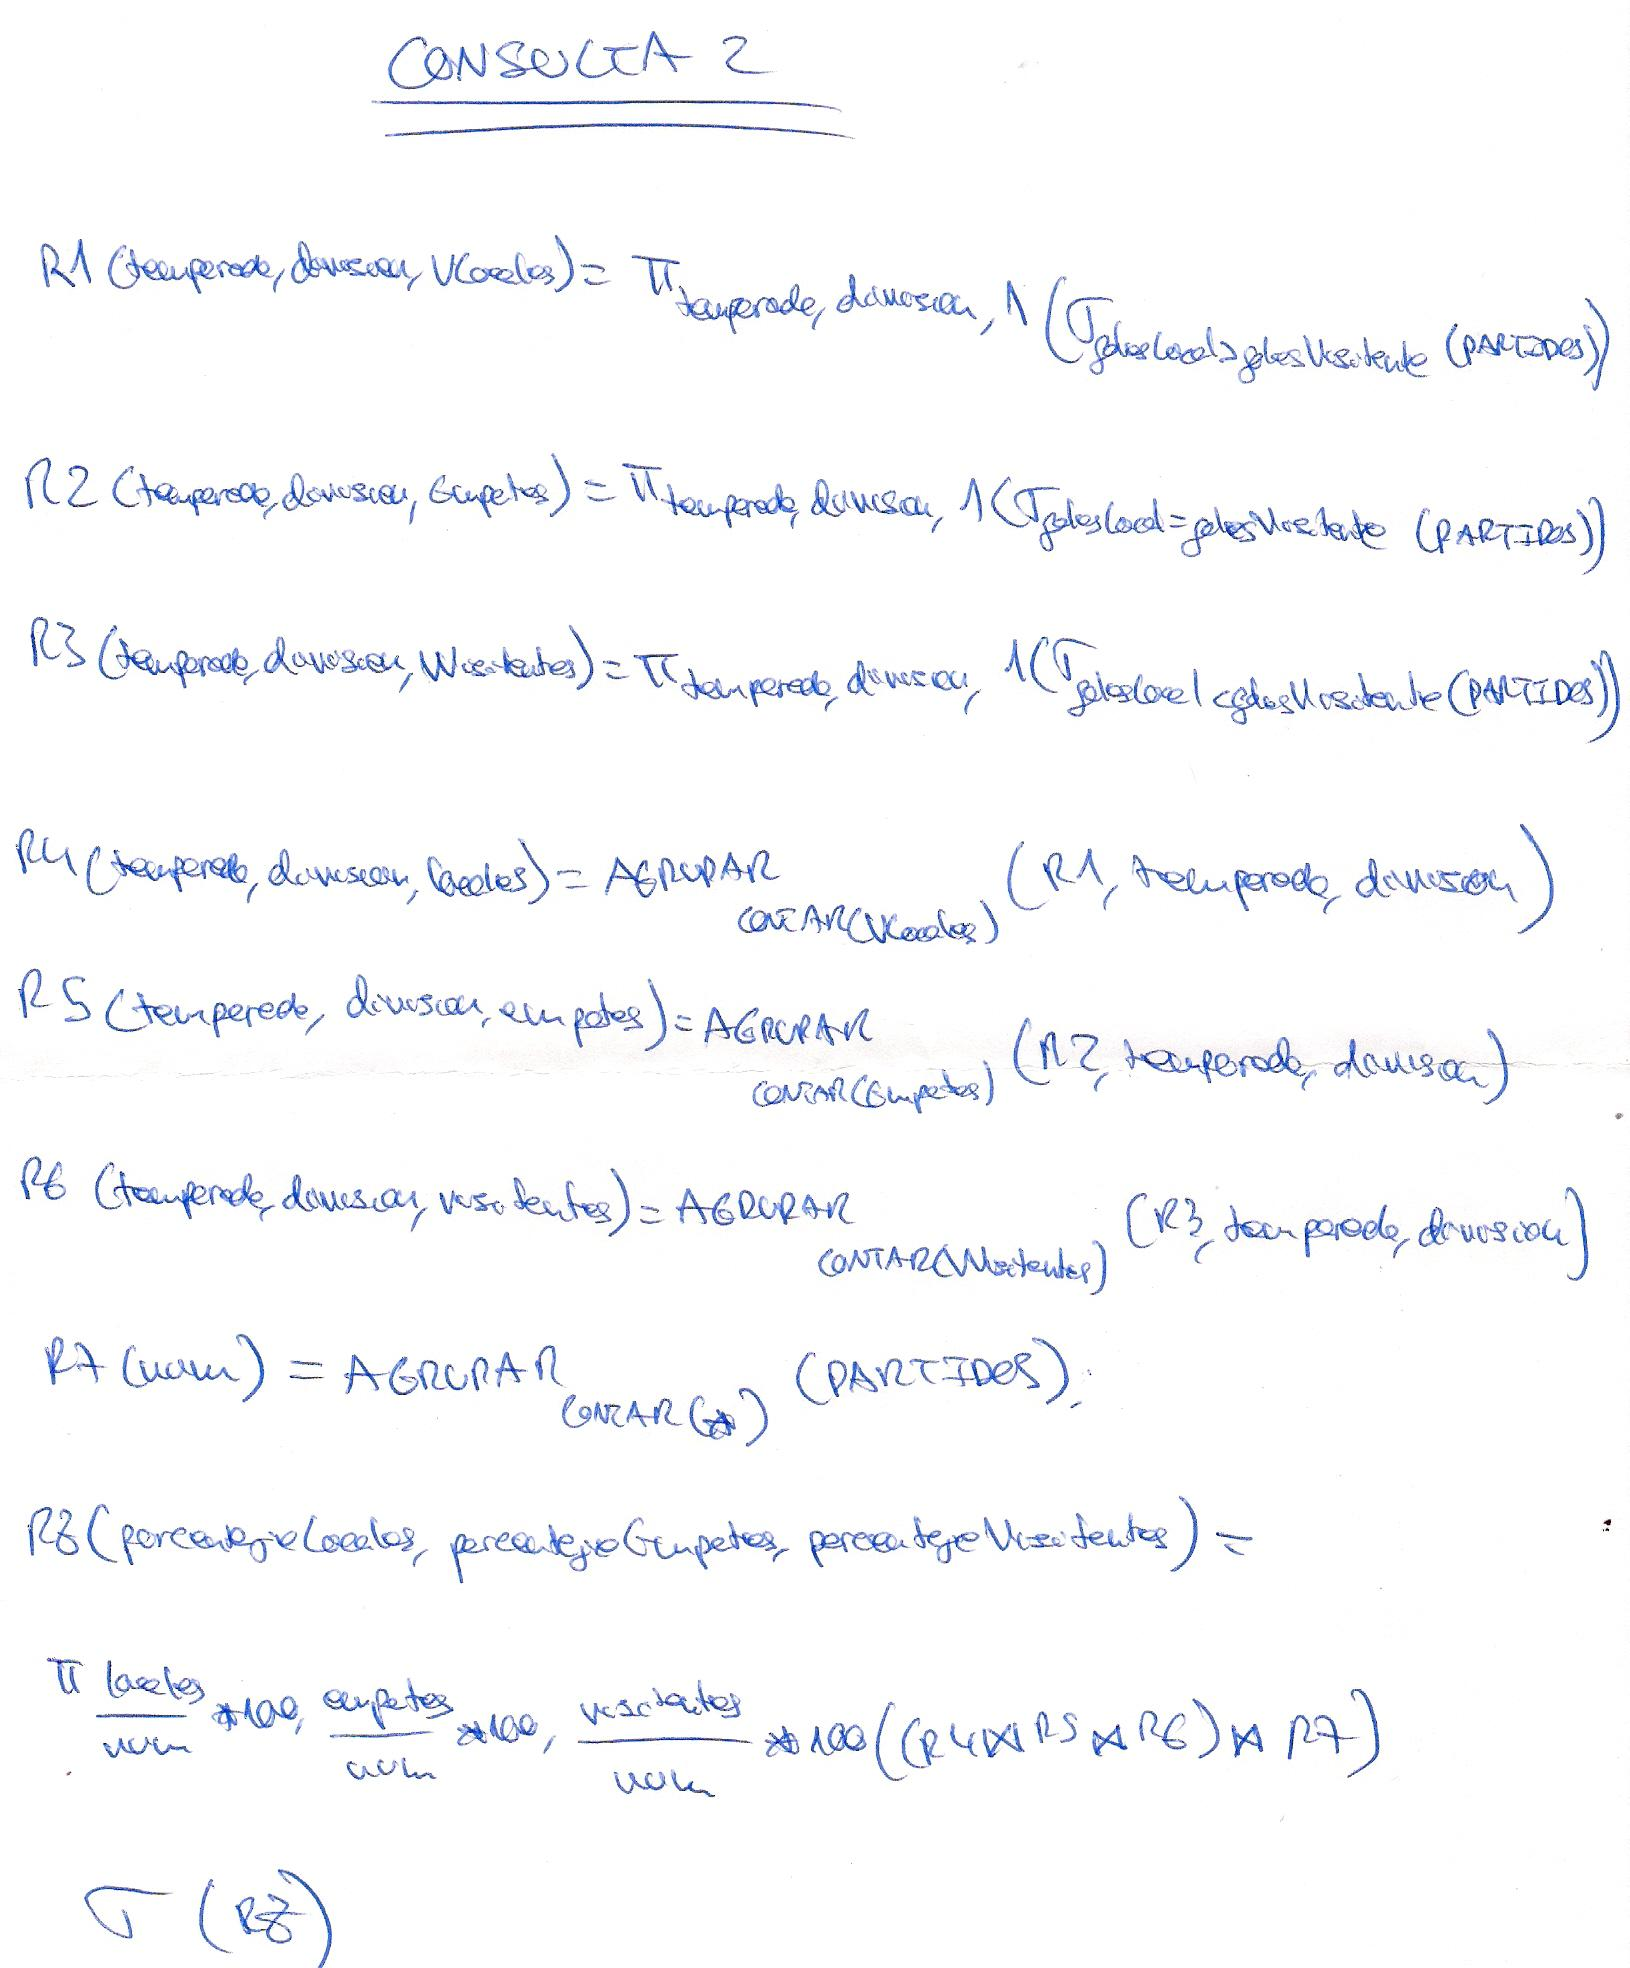 CONSULTA 2
R1 (temporada, division, VLocales) = π temporada, division, 1 (σ golesLocal>golesVisitante (PARTIDOS))
R2 (temporada, division, Empates) = π temporada, division, 1 (σ golesLocal=golesVisitante (PARTIDOS))
R3 (temporada, division, VVisitantes) = π temporada, division, 1 (σ golesLocal<golesVisitante (PARTIDOS))
R4 (temporada, division, locales) = AGRUPAR CONTAR(VLocales) (R1, temporada, division)
R5 (temporada, division, empates) = AGRUPAR CONTAR(Empates) (R2, temporada, division)
R6 (temporada, division, visitantes) = AGRUPAR CONTAR(VVisitantes) (R3, temporada, division)
R7 (num) = AGRUPAR CONTAR(*) (PARTIDOS);
R8 (porcentajeLocales, porcentajeEmpates, porcentajeVisitantes) =
π locales/num *100, empates/num *100, visitantes/num *100 ((R4 ⋈ R5 ⋈ R6) ⋈ R7)
σ (R8)